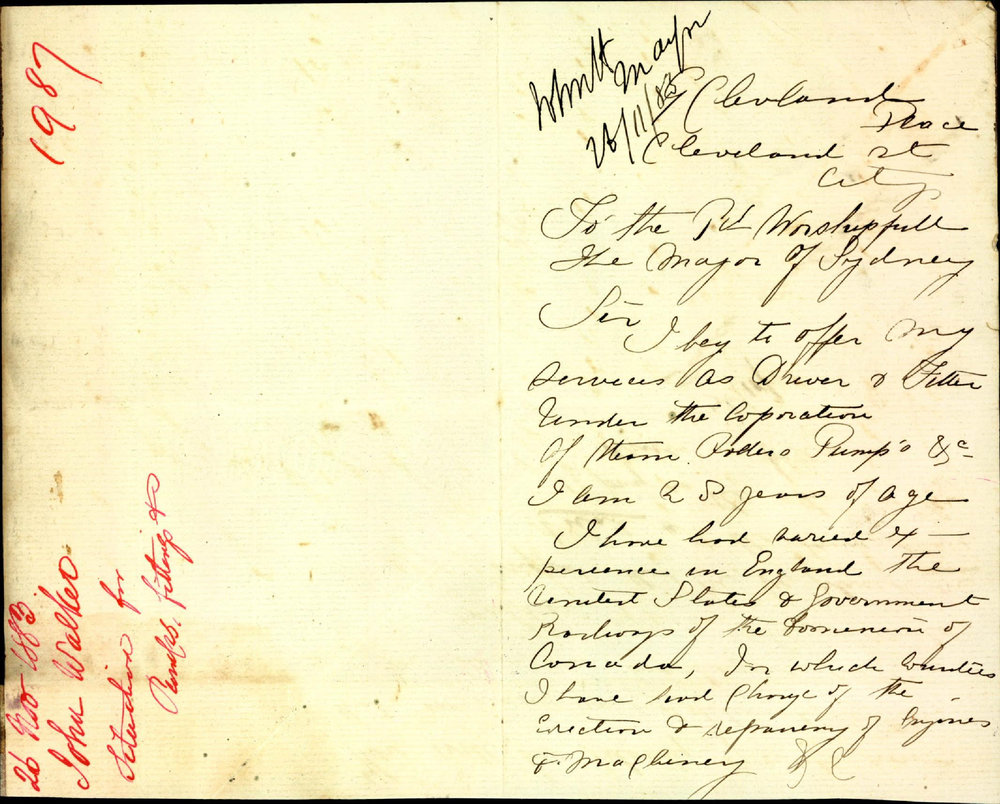 1987
26 Nov 1883
John Walker
Situation for
Pumps, fittings &c
Mayor
26/11/83
Cleveland
Place
Cleveland St
City
To the Rt Worshipfull
The Mayor of Sydney
Sir
I beg to offer my
services as Driver & Fitter
Under the Coporation
Of Steam Pump's &c
I am 28 years of age
I have had varied ex-
perience in England the
United States & Government
Railways of the Dominion of
Canada, In which Counties
I have had Charge of the
Erection & repairing of Engines
& Machiney &c